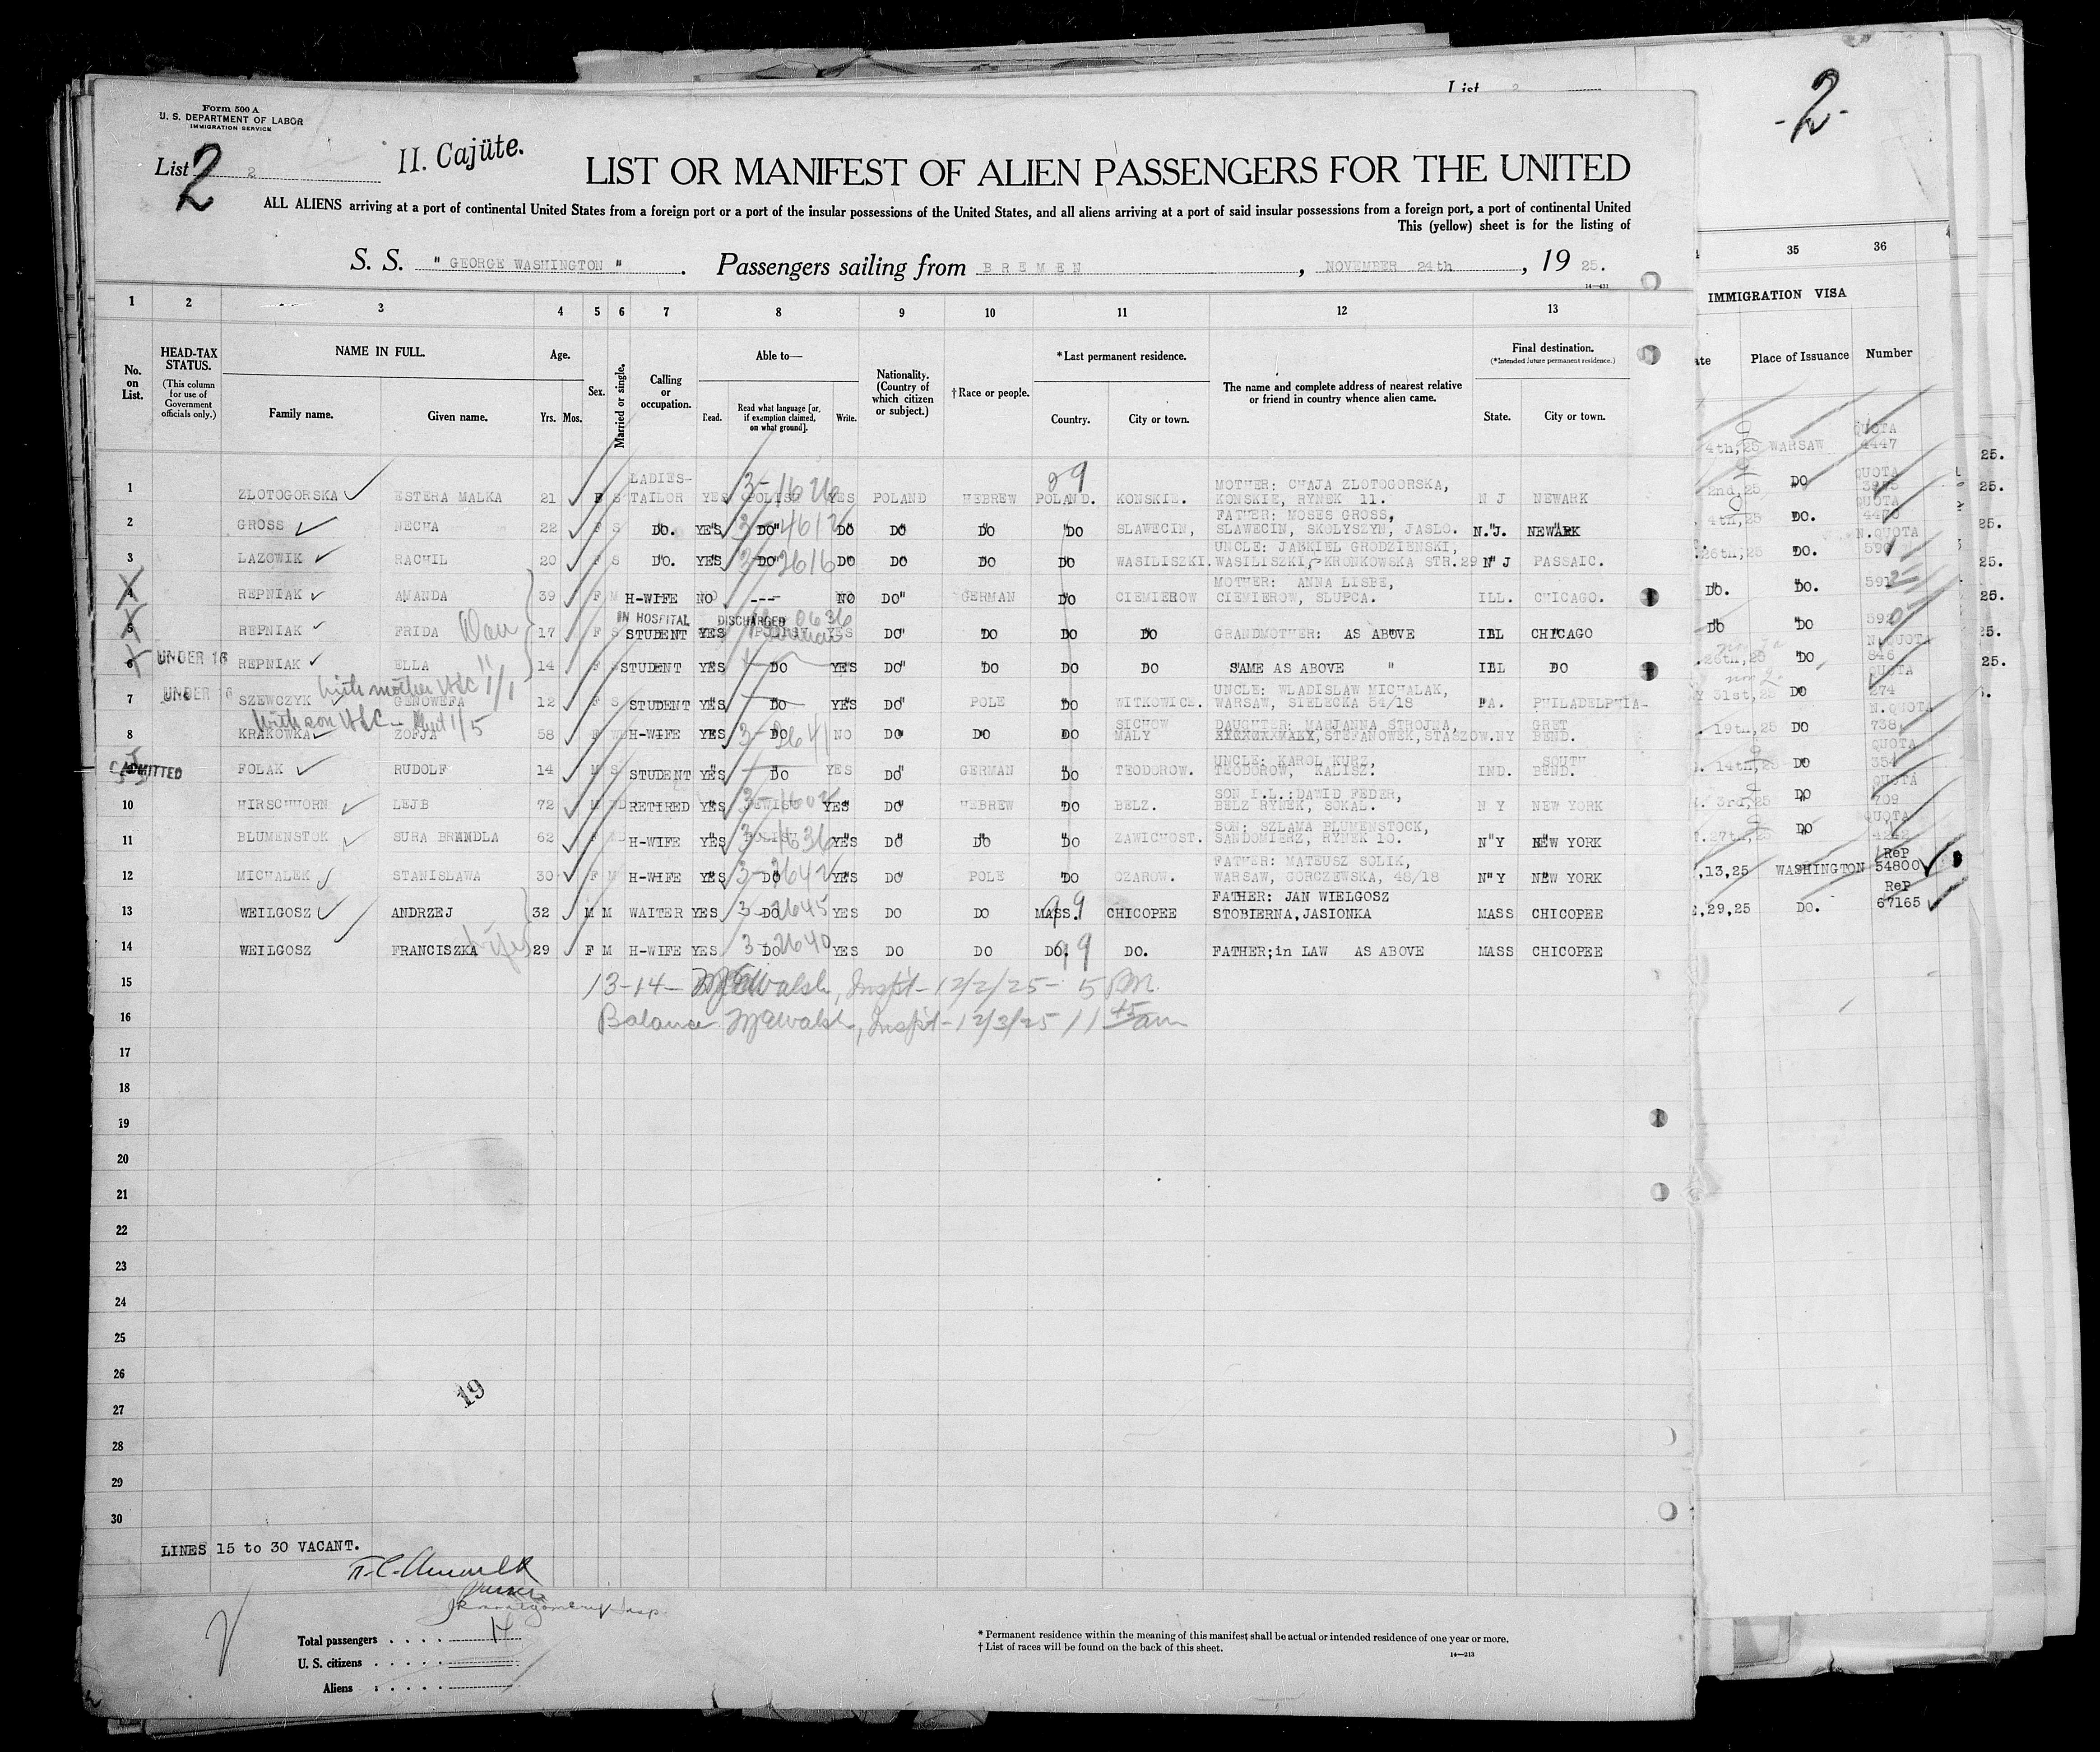 List 2
-2-
Form 500 A
U. S. DEPARTMENT OF LABOR
IMMIGRATION SERVICE
List 2 2
II. Cajüte.
LIST OR MANIFEST OF ALIEN PASSENGERS FOR THE UNITED
ALL ALIENS arriving at a port of continental United States from a foreign port or a port of the insular possessions of the United States, and all aliens arriving at a port of said insular possessions from a foreign port, a port of continental United
This (yellow) sheet is for the listing of
S. S. " GEORGE WASHINGTON " . Passengers sailing from BREMEN , NOVEMBER 24th , 19 25.
14—431
1 2 3 4 5 6 7 8 9 10 11 12 13 35 36
No. on List.
HEAD-TAX STATUS.
(This column for use of Government officials only.)
NAME IN FULL.
Family name. Given name.
Age.
Yrs. Mos.
Sex.
Married or single.
Calling or occupation.
Able to—
Read. Read what language [or, if exemption claimed, on what ground]. Write.
Nationality. (Country of which citizen or subject.)
† Race or people.
*Last permanent residence.
Country. City or town.
The name and complete address of nearest relative or friend in country whence alien came.
Final destination.
(*Intended future permanent residence.)
State. City or town.
IMMIGRATION VISA
Place of Issuance Number
1 ZLOTOGORSKA ESTERA MALKA 21 F S LADIES-TAILOR YES POLISH YES POLAND HEBREW POLAND. KONSKIE. MOTHER: CHAJA ZLOTOGORSKA, KONSKIE, RYNEK 11. N J NEWARK
2 GROSS NECHA 22 F S DO. YES DO DO DO DO DO SLAWECIN, FATHER: MOSES GROSS, SLAWECIN, SKOLYSZYN, JASLO. N.J. NEWARK
3 LAZOWIK RACHIL 20 F S DO. YES DO DO DO DO DO WASILISZKI. UNCLE: JANKIEL GRODZIENSKI, WASILISZKI, KRONKOWSKA STR.29 N J PASSAIC.
4 REPNIAK AMANDA 39 F M H-WIFE NO --- NO DO GERMAN DO CIEMIEROW MOTHER: ANNA LISBE, CIEMIEROW, SLUPCA. ILL. CHICAGO.
IN HOSPITAL DISCHARGED
5 REPNIAK FRIDA 17 F S STUDENT YES YES DO DO DO DO GRANDMOTHER: AS ABOVE ILL CHICAGO
6 UNDER 16 REPNIAK ELLA 14 F S STUDENT YES DO YES DO DO DO DO SAME AS ABOVE " ILL DO
7 UNDER 16 SZEWCZYK GENOWEFA 12 F S STUDENT YES DO YES DO POLE DO WITKOWICE. UNCLE: WLADISLAW MICHALAK, WARSAW, SIELECKA 54/18 PA. PHILADELPHIA-
8 KRAKOWKA ZOFJA 58 F WD H-WIFE YES DO NO DO DO DO SICHOW MALY DAUGHTER: MARJANNA STROJNA, STEFANOWEK, STASZOW. NY GRET BEND.
9 ADMITTED FOLAK RUDOLF 14 M S STUDENT YES DO YES DO GERMAN DO TEODOROW. UNCLE: KAROL KURZ, TEODOROW, KALISZ. IND. SOUTH BEND.
10 HIRSCHHORN LEJB 72 M WD RETIRED YES JEWISH YES DO HEBREW DO BELZ. SON I.L.: DAWID FEDER, BELZ RYNEK, SOKAL. N Y NEW YORK
11 BLUMENSTOK SURA BRANDLA 62 F WD H-WIFE YES POLISH YES DO DO DO ZAWICHOST. SON: SZLAMA BLUMENSTOCK, SANDOMIERZ, RYNEK 10. N Y NEW YORK
12 MICHALEK STANISLAWA 30 F M H-WIFE YES DO YES DO POLE DO OZAROW. FATHER: MATEUSZ SOLIK, WARSAW, GORCZEWSKA, 48/18 N Y NEW YORK
13 WEILGOSZ ANDRZEJ 32 M M WAITER YES DO YES DO DO MASS. CHICOPEE FATHER: JAN WIELGOSZ STOBIERNA, JASIONKA MASS CHICOPEE
14 WEILGOSZ FRANCISZKA wife 29 F M H-WIFE YES DO YES DO DO DO. DO. FATHER;in LAW AS ABOVE MASS CHICOPEE
15 13-14- Walsh, Inspt- 12/2/25- 5 PM.
16 Balance Walsh, Inspt- 12/3/25 11 45 am
17
18
19
20
21
22
23
24
25
26
27
28
29
30
4th,25 WARSAW QUOTA 4447
2nd,25 DO QUOTA
4th,25 DO. QUOTA
26th,25 DO. N.QUOTA 590
DO. DO. 591
DO DO 592
26th,25 DO N.QUOTA 846
31st,25 DO QUOTA 274
19th,25 DO N.QUOTA 738
14th,25 DO QUOTA 354
3rd,25 DO QUOTA 709
27th,25 DO QUOTA 4242
,13,25 WASHINGTON ReP 54800
,29,25 DO. ReP 67165
19
LINES 15 to 30 VACANT.
Total passengers . . . . . 14
U. S. citizens . . . . .
Aliens . . . . .
* Permanent residence within the meaning of this manifest shall be actual or intended residence of one year or more.
† List of races will be found on the back of this sheet.
14—213